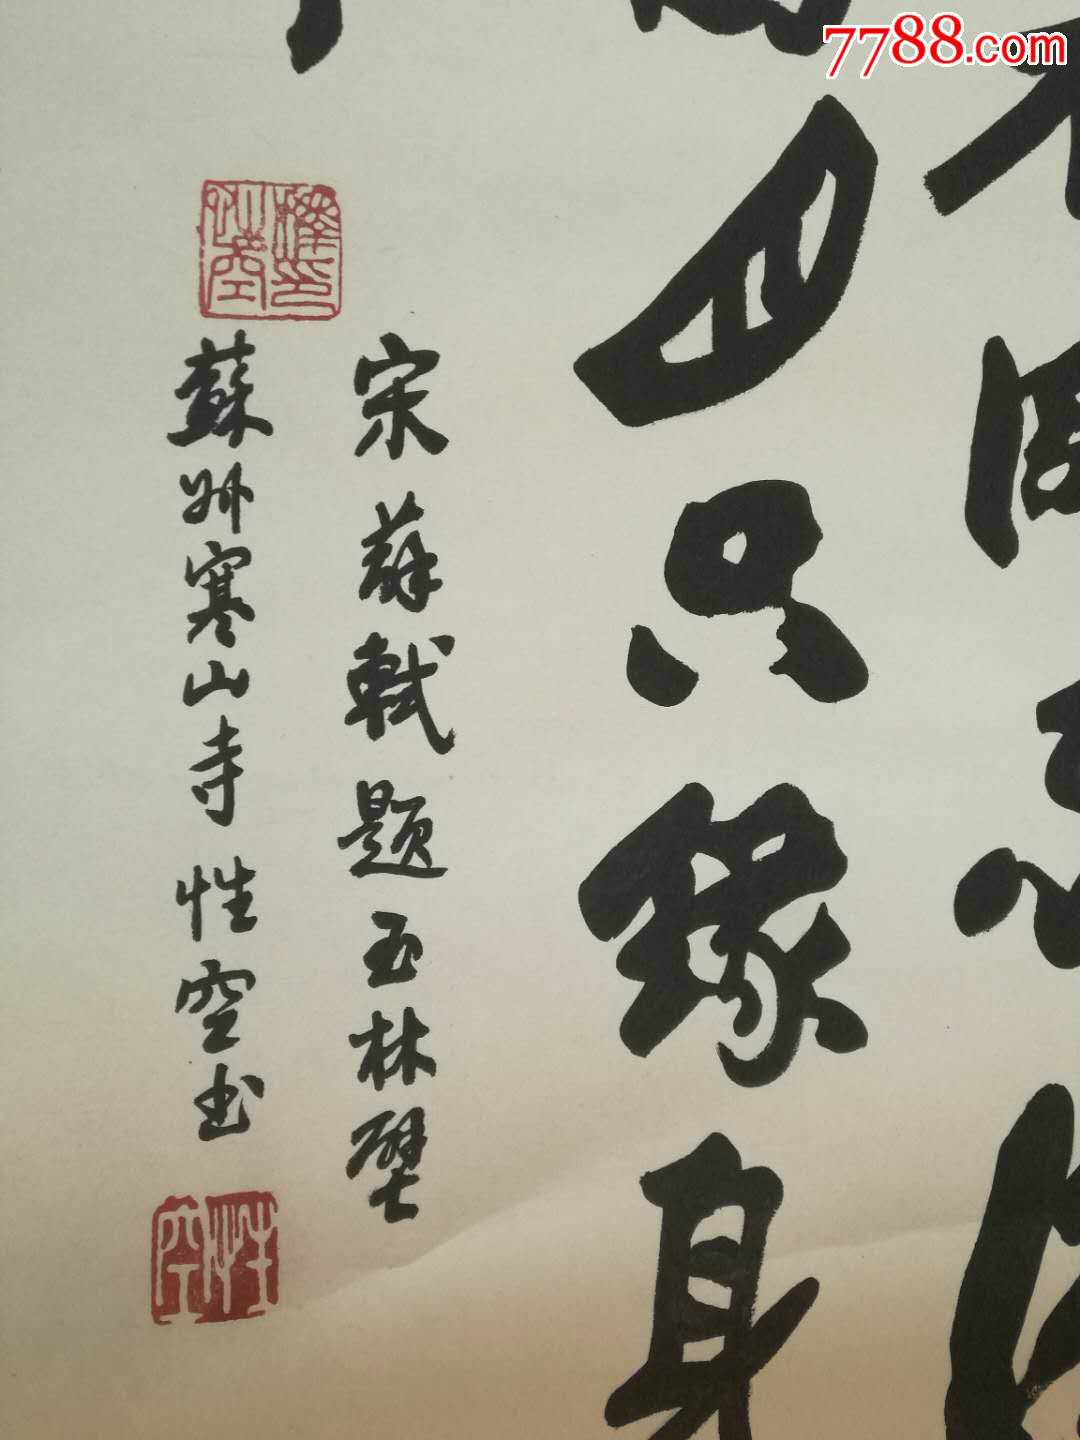 7788.com
不同遠
山只緣身
宋蘇軾題西林壁
蘇州寒山寺性空書
性空